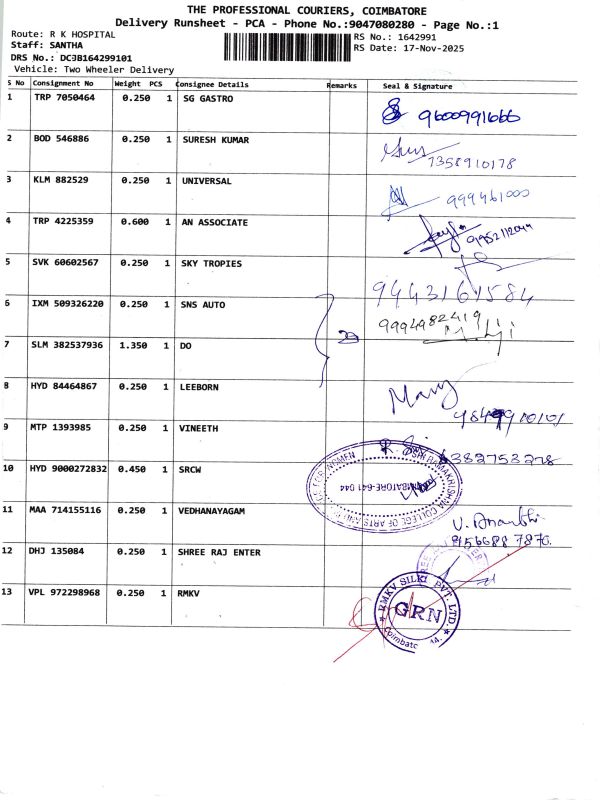 THE PROFESSIONAL COURIERS, COIMBATORE
Delivery Runsheet - PCA - Phone No.:9047080280 - Page No.:1
Route: R K HOSPITAL RS No.: 1642991
Staff: SANTHA RS Date: 17-Nov-2025
DRS No.: DC3B164299101
Vehicle: Two Wheeler Delivery
S No Consignment No Weight PCS Consignee Details Remarks Seal & Signature
1 TRP 7050464 0.250 1 SG GASTRO 9600991666
2 BOD 546886 0.250 1 SURESH KUMAR 7358910178
3 KLM 882529 0.250 1 UNIVERSAL 999461000
4 TRP 4225359 0.600 1 AN ASSOCIATE
5 SVK 60602567 0.250 1 SKY TROPIES 9443161584
6 IXM 509326220 0.250 1 SNS AUTO 9994982419
7 SLM 382537936 1.350 1 DO
8 HYD 84464867 0.250 1 LEEBORN Mary
9 MTP 1393985 0.250 1 VINEETH 6382753278
10 HYD 9000272832 0.450 1 SRCW SRI RAMAKRISHNA COLLEGE OF ARTS AND FOR WOMEN COIMBATORE-641 044
11 MAA 714155116 0.250 1 VEDHANAYAGAM
12 DHJ 135084 0.250 1 SHREE RAJ ENTER
13 VPL 972298968 0.250 1 RMKV RMKV SILKS PVT. LTD. GRN Coimbato